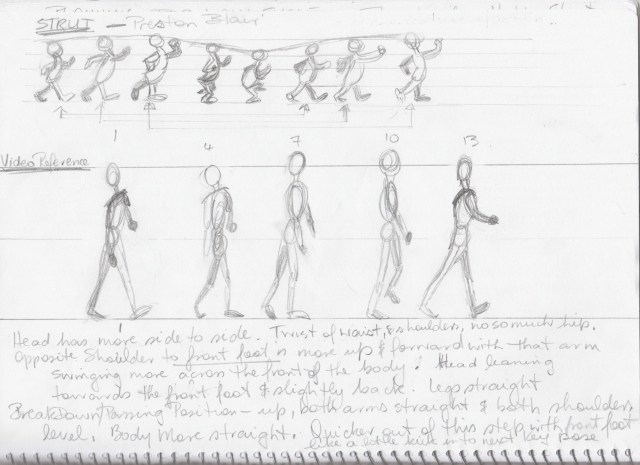 STRUT – Preston Blair
1 4 7 10 13
Video Reference
Head has more side to side. Twist of waist, & shoulders, no so much hip.
Opposite Shoulder to front foot is more up & forward with that arm
swinging more across the front of the body! Head leaning
towards the front foot & slightly back. Legs straight
BreakDown/Passing Position – up, both arms straight & both shoulders
level. Body more straight. Quicker out of this step with front foot
like a little kick into next Key Pose